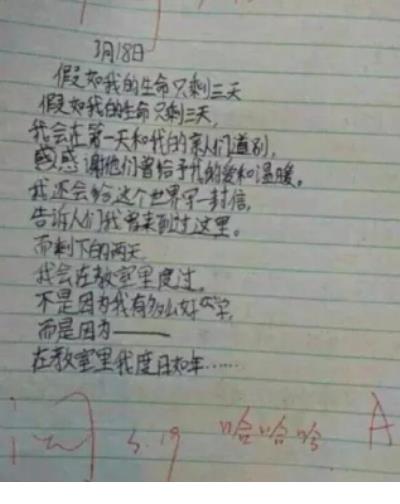 3月18日
假如我的生命只剩三天
假如我的生命只剩三天,
我会在第一天和我的亲人们道别,
感感谢他们曾给予我的爱和温暖。
我还会给这个世界写一封信,
告诉人们我曾来到过这里。
而剩下的两天
我会在教室里度过。
不是因为我有多么好学,
而是因为——
在教室里我度日如年……
阅 3.19 哈哈哈 A